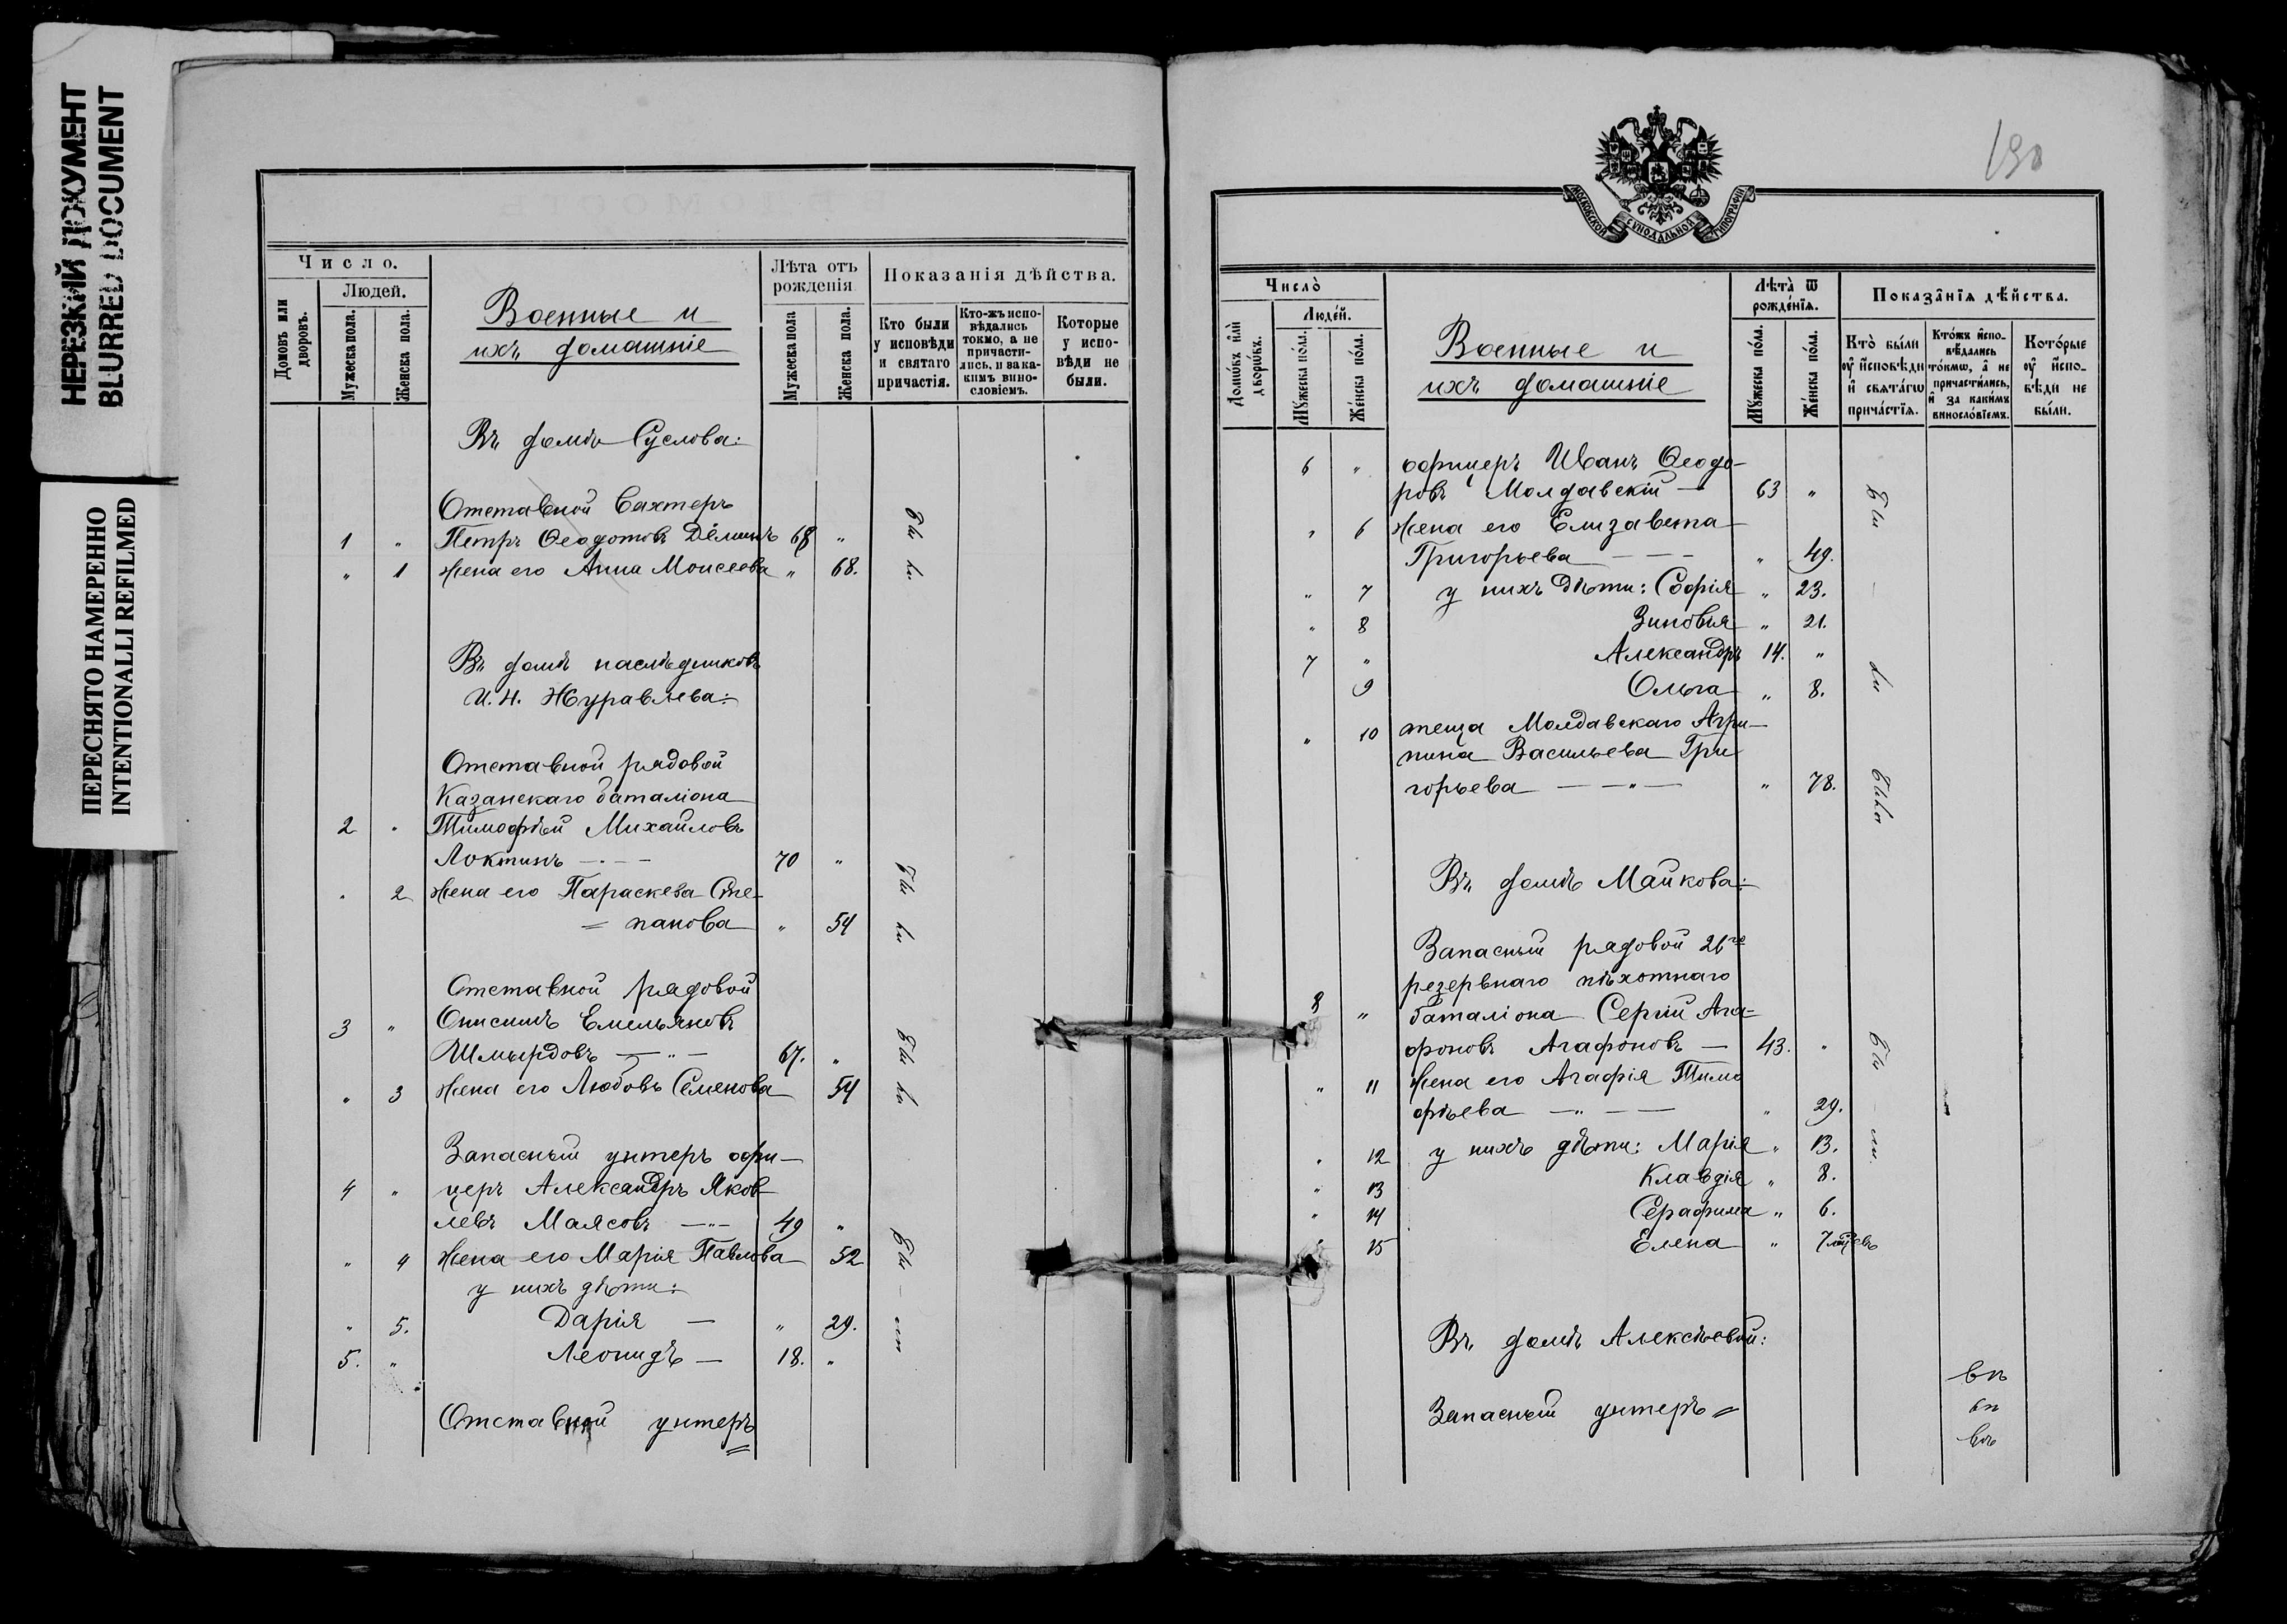 НЕРЕЗКИЙ ДОКУМЕНТ
BLURRED DOCUMENT
ПЕРЕСНЯТО НАМЕРЕННО
INTENTIONALLI REFILMED
Число.
Домовъ или дворовъ.
Людей.
Мужеска пола.
Женска пола.
Военные и
ихъ домашніе
Лѣта отъ рожденія
Мужеска пола
Женска пола.
Показанія дѣйства.
Кто были у исповѣди и святаго причастія.
Кто-жъ испо-
вѣдались
токмо, а не
причасти-
лись, и за ка-
кимъ вино-
словіемъ.
Которые у испо-
вѣди не были.
Въ домѣ Суслова:
Отставной Вахтеръ
1 „ Петръ Ѳеодотовъ Дёминъ 68 „
„ 1 жена его Анна Моисеева „ 68.
Въ домѣ наслѣдниковъ
И. Н. Журавлева:
Отставной рядовой
Казанскаго баталіона
2 „ Тимофѣй Михайловъ
Локтинъ — 70 „
„ 2 жена его Параскева Сте-
= панова „ 54
Отставной рядовой
3 „ Онисимъ Емельяновъ
Шмырдовъ — „ — 67. „
„ 3 жена его Любовь Семенова 54
Запасный унтеръ офи-
4 „ церъ Александръ Яков-
левъ Маясовъ — „ — 49 „
„ 4 жена его Марія Павлова 52
у нихъ дѣти:
„ 5. Дарія — „ 29.
5. „ Леонидъ — 18. „
Отставной унтеръ =
190
МОСКОВСКОЙ СѴНОДАЛЬНОЙ ТИПОГРАФІИ
Число̀
Домѡ́въ и҆лѝ дворѡ́въ.
Люде́й.
Мꙋ́жеска по́ла.
Же́нска по́ла.
Военные и
ихъ домашніе
Лѣта̀ ѿ рожде́нїѧ.
Мꙋ́жеска по́ла.
Же́нска по́ла.
Показа̑нїѧ дѣ́йства.
Кто̀ бы́ли ᲂу҆ и҆сповѣ́ди и҆ свѧта́гѡ прича́стїѧ.
Кто́жъ и҆спо-
вѣ́дались
то́кмѡ, а҆ не
причасти́лись,
и҆ за каки́мъ
виносло́вїемъ.
Кото́рые ᲂу҆ и҆спо-
вѣ́ди не бы́ли.
6 „ офицеръ Иванъ Ѳеодо-
ровъ Молдавскій — 63 „
„ 6 жена его Елизавета
Григорьева — — — „ 49.
„ 7 у нихъ дѣти: Софія „ 23.
„ 8 Зиновія „ 21.
7 „ Александръ 14. „
9 Ольга „ 8.
„ 10 теща Молдавскаго Агри-
пина Васильева Гри
горьева — — „ — „ 78.
Въ домѣ Майкова:
Запасный рядовой 26го
резервнаго пѣхотнаго
8 „ баталіона Сергій Ага=
фоновъ Агафоновъ — 43. „
„ 11 жена его Агафія Тимо
фѣева — „ — — „ 29.
„ 12 у нихъ дѣти: Марія „ 13.
„ 13 Клавдія „ 8.
„ 14 Серафима „ 6.
„ 15 Елена „ 7 мѣсяцевъ
Въ домѣ Алексѣевой:
Запасный унтеръ =